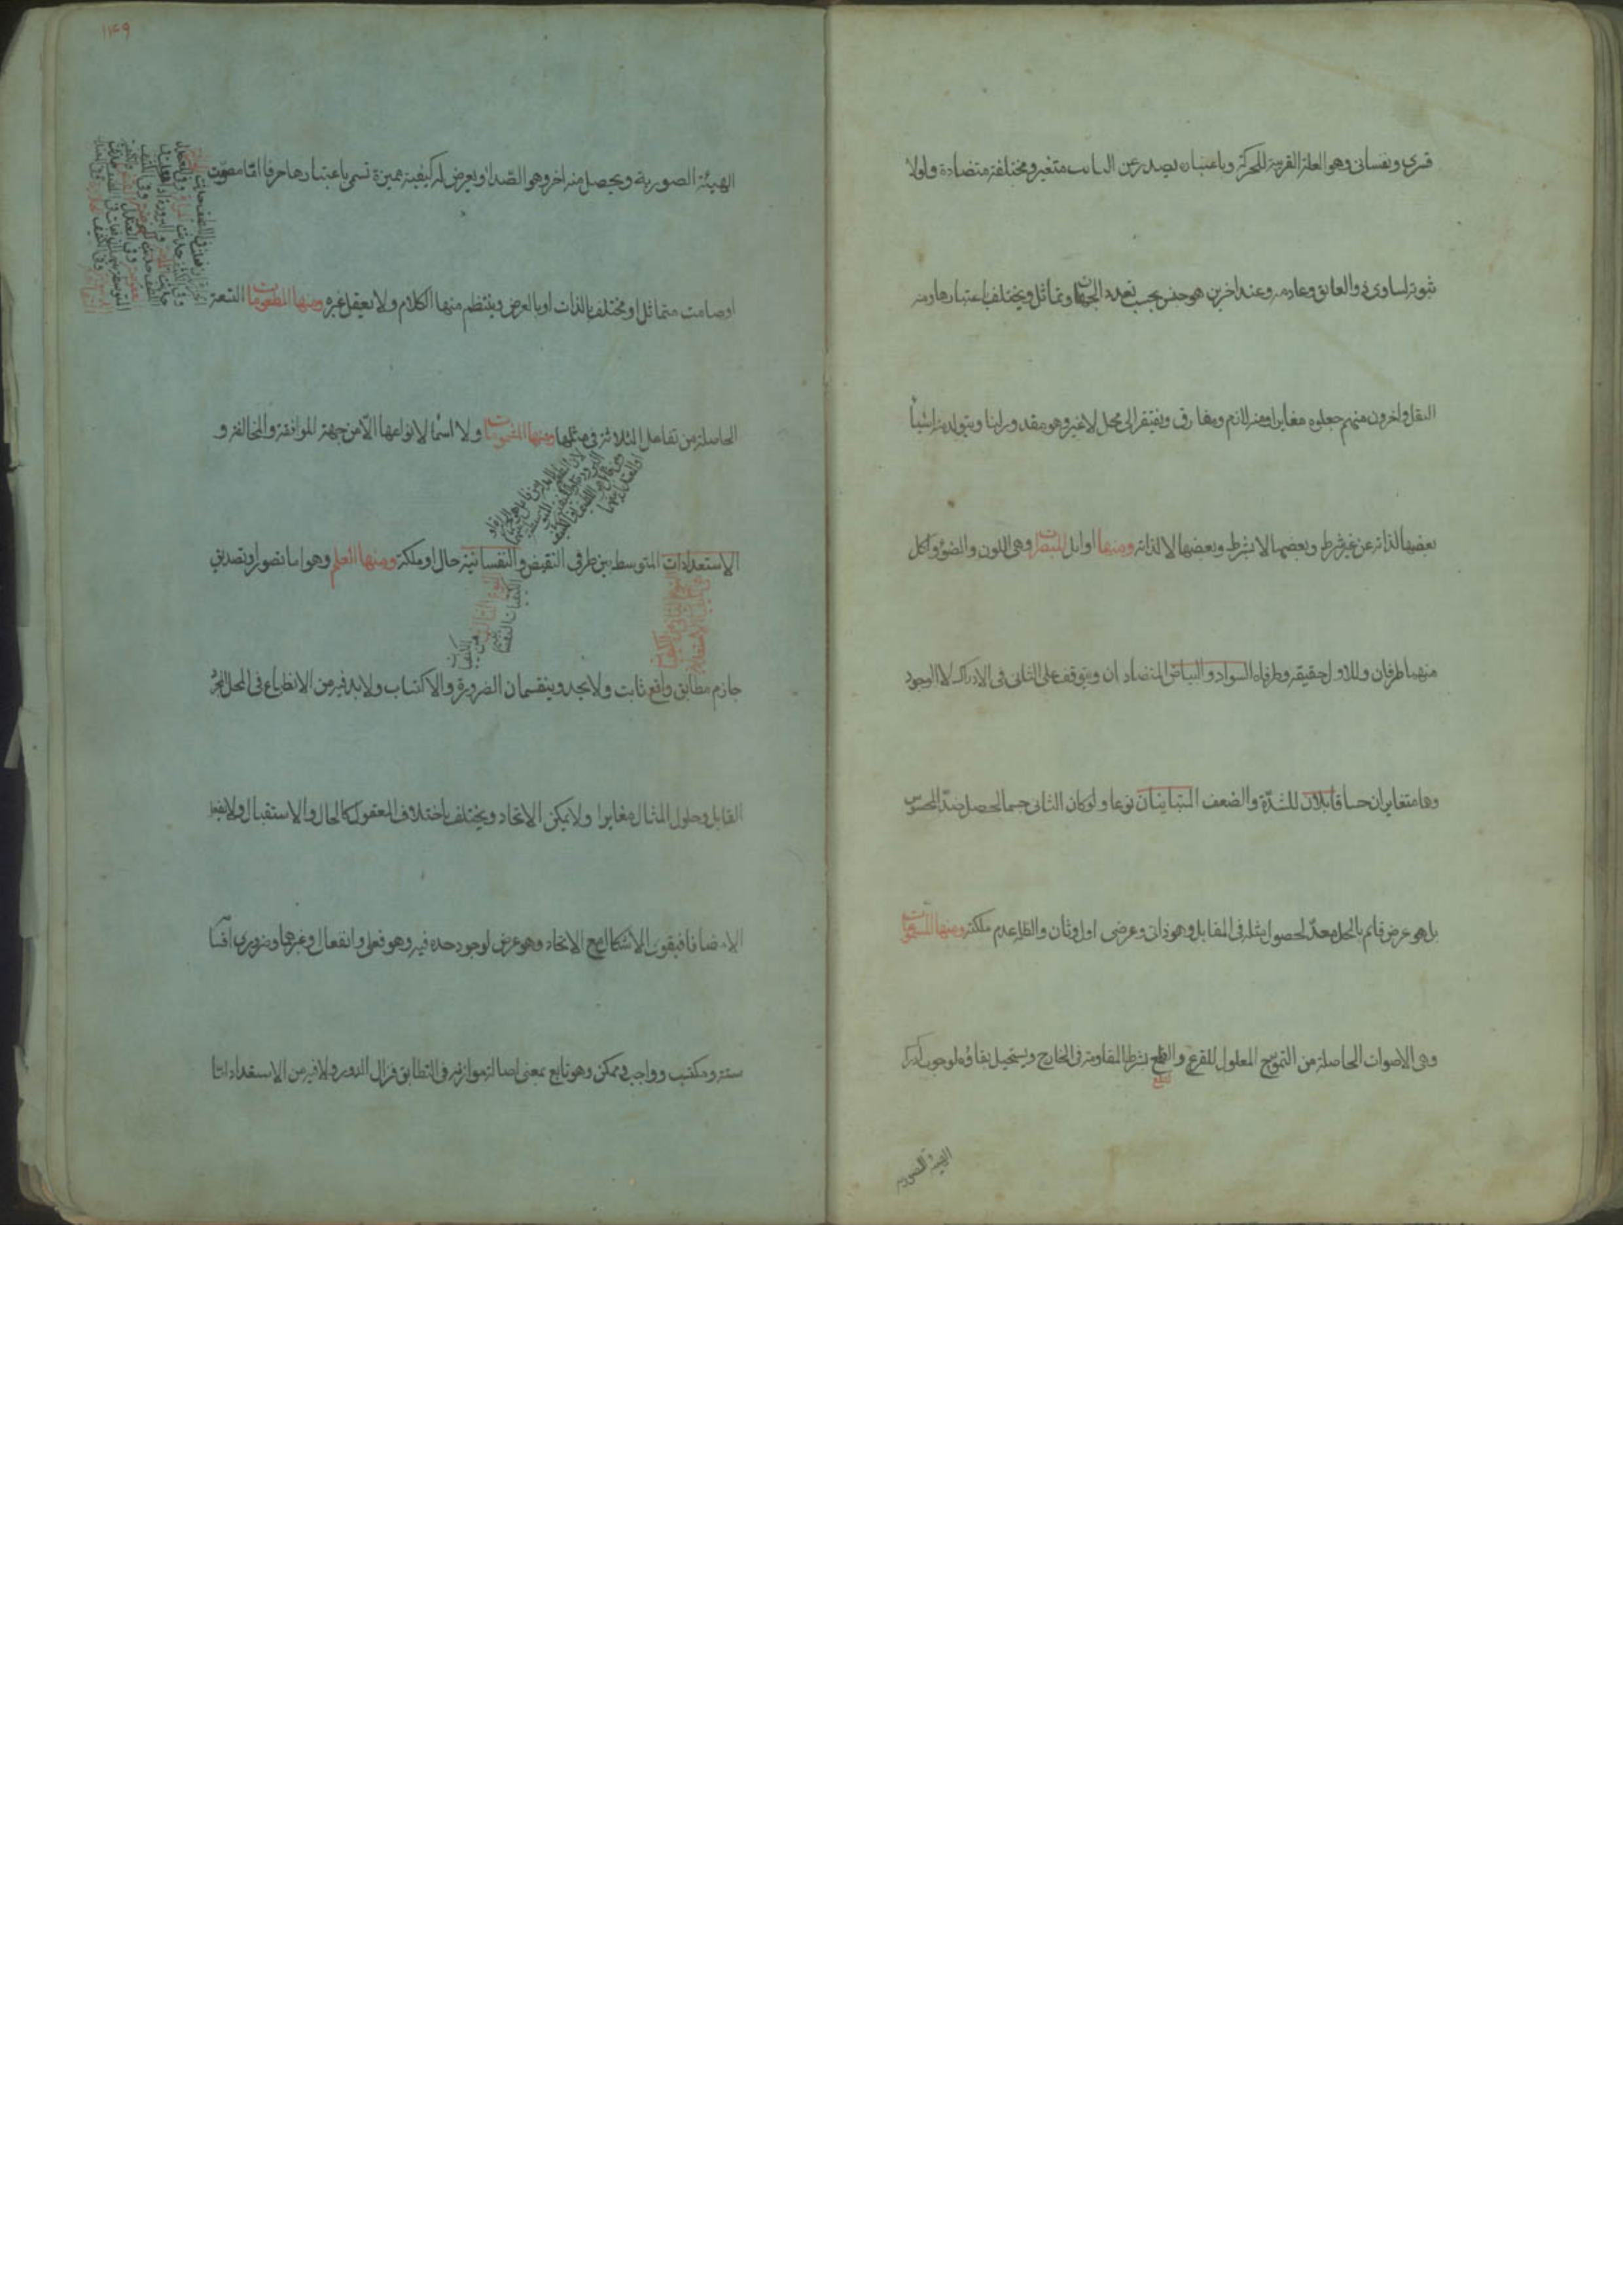 قسرى ونفسانى وهو العلة القريبة للحركة وباعتباره يصدر عن الثابت متغير ومختلفة متضادة ولولا
ثبوته لساوى ذو العائق وعادمه وعند اخرين هو جنس بحسب تعدد الجهات وتماثل ويختلف باعتبارها ومنه
الثقل واخرون منهم جعلوه مغايرا ومنه لازم ومفارق ويفتقر الى محل لا غير وهو مقدور لنا ويتولد منه اشياء
بعضها لذاته من غير شرط وبعضها لا بشرط وبعضها لا لذاته ومنها اوائل المبصرات وهى اللون والضوء ولكل
منهما طرفان وللاول حقيقة وطرفاه السواد والبياض المتضادان ويتوقف على الثانى فى الادراك لا الوجود
وهما متغايران حسا قابلان للشدة والضعف المتباينان نوعا ولو كان الثانى جسما لحصل ضد المحسوس
بل هو عرض قائم بالمحل معد لحصول مثله فى المقابل وهو ذاتى وعرضى اول وثان والظلمة عدم ملكة ومنها المسموعات
وهى الاصوات الحاصلة من التموج المعلول للقرع والقلع بشرط المقاومة فى الخارج ويستحيل بقاؤه لوجوب ادراك
الهيئة الصورية
١٤٩
الهيئة الصورية ويحصل منه اخر وهو الصدا ويعرض له كيفية مميزة تسمى باعتبارها حرفا اما مصوت
او صامت متماثل او مختلف بالذات او بالعرض وينتظم منها الكلام ولا يعقل غيره ومنها المطعومات التسعة
الحاصلة من تفاعل الثلاثة فى مثلها ومنها المشمومات ولا اسما لانواعها الا من جهة الموافقة والمخالفة و
الاستعدادات المتوسطة بين طرفى النقيض والنفسانية حال او ملكة ومنها العلم وهو اما تصور او تصديق
جازم مطابق واقع ثابت ولا يحد وينقسمان الضرورة والاكتساب ولا بد فيه من الانطباع فى المحل المجرد
القابل وحلول المثال مغايرا ولا يمكن الاتحاد ويختلف باختلاف المعقول كالحال والاستقبال ولا يعقل
الا مضافا فيقوى الاشكال مع الاتحاد وهو عرض لوجود حده فيه وهو فعلى وانفعال وغيرهما وضرورى اقسامه
ستة ومكتسب وواجب وممكن وهو تابع بمعنى اصالة موازنه فى التطابق فزال الدور ولا فيه من الاستعداد اما